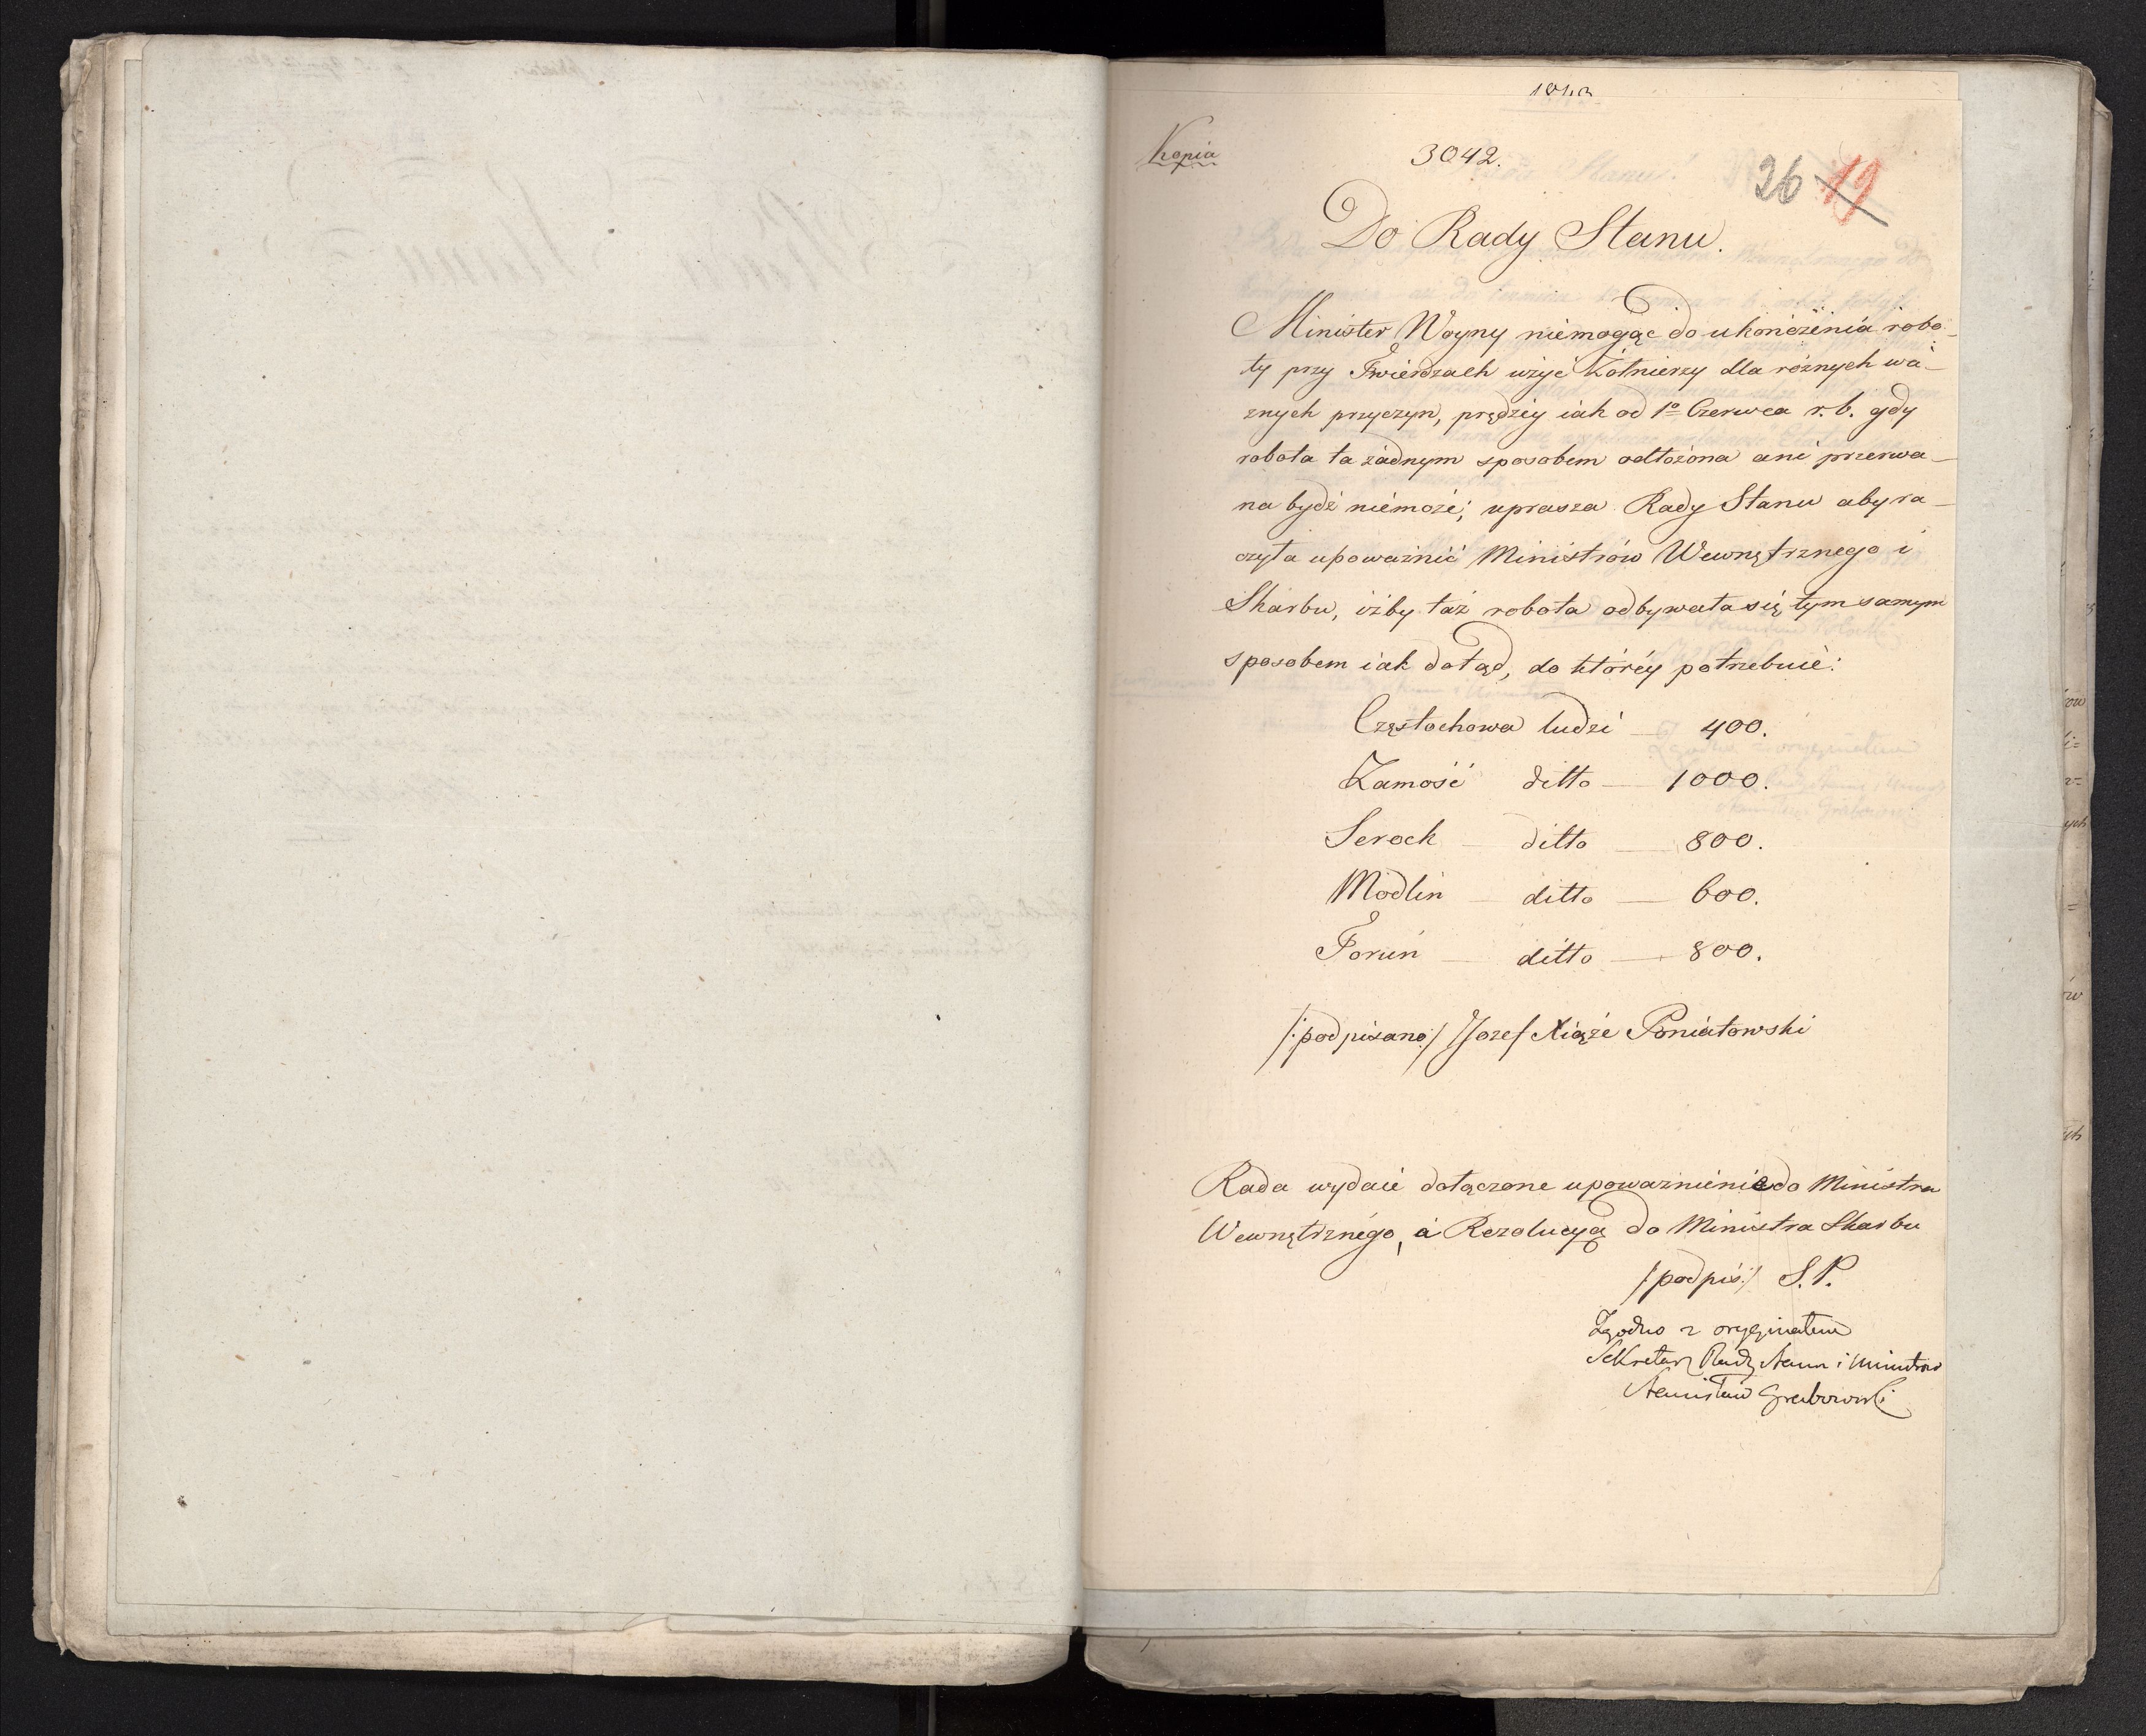 Kopia
3042.
26 19
Do Rady Stanu.
Minister Woyny niemogąc do ukończenia robo-
ty przy Twierdzach użyć Żołnierzy dla różnych wa-
znych przyczyn, prędzey iak od 1º Czerwca r. b. gdy
robota ta żadnym sposobem odłożona ani przerwa-
na bydź niemoże; uprasza Rady Stanu aby ra-
czyła upoważnić Ministrów Wewnętrznego i
Skarbu, iżby taż robota odbywała się tym samym
sposobem iak dotąd, do któréy potrzebuie:
Częstochowa ludzi — 400.
Zamość ditto — 1000.
Serock — ditto — 800.
Modlin — ditto — 600.
Toruń — ditto — 800.
/:podpisano:/ Jozef Xiąże Poniatowski
Rada wydaie dołączone upoważnienie do Ministra
Wewnętrznégo, a Rezolucyą do Ministra Skarbu
/podpis:/ S. P.
Zgodno z oryginałem
Sekretarz Rady Stanu i Ministrów
Stanisław Grabowski